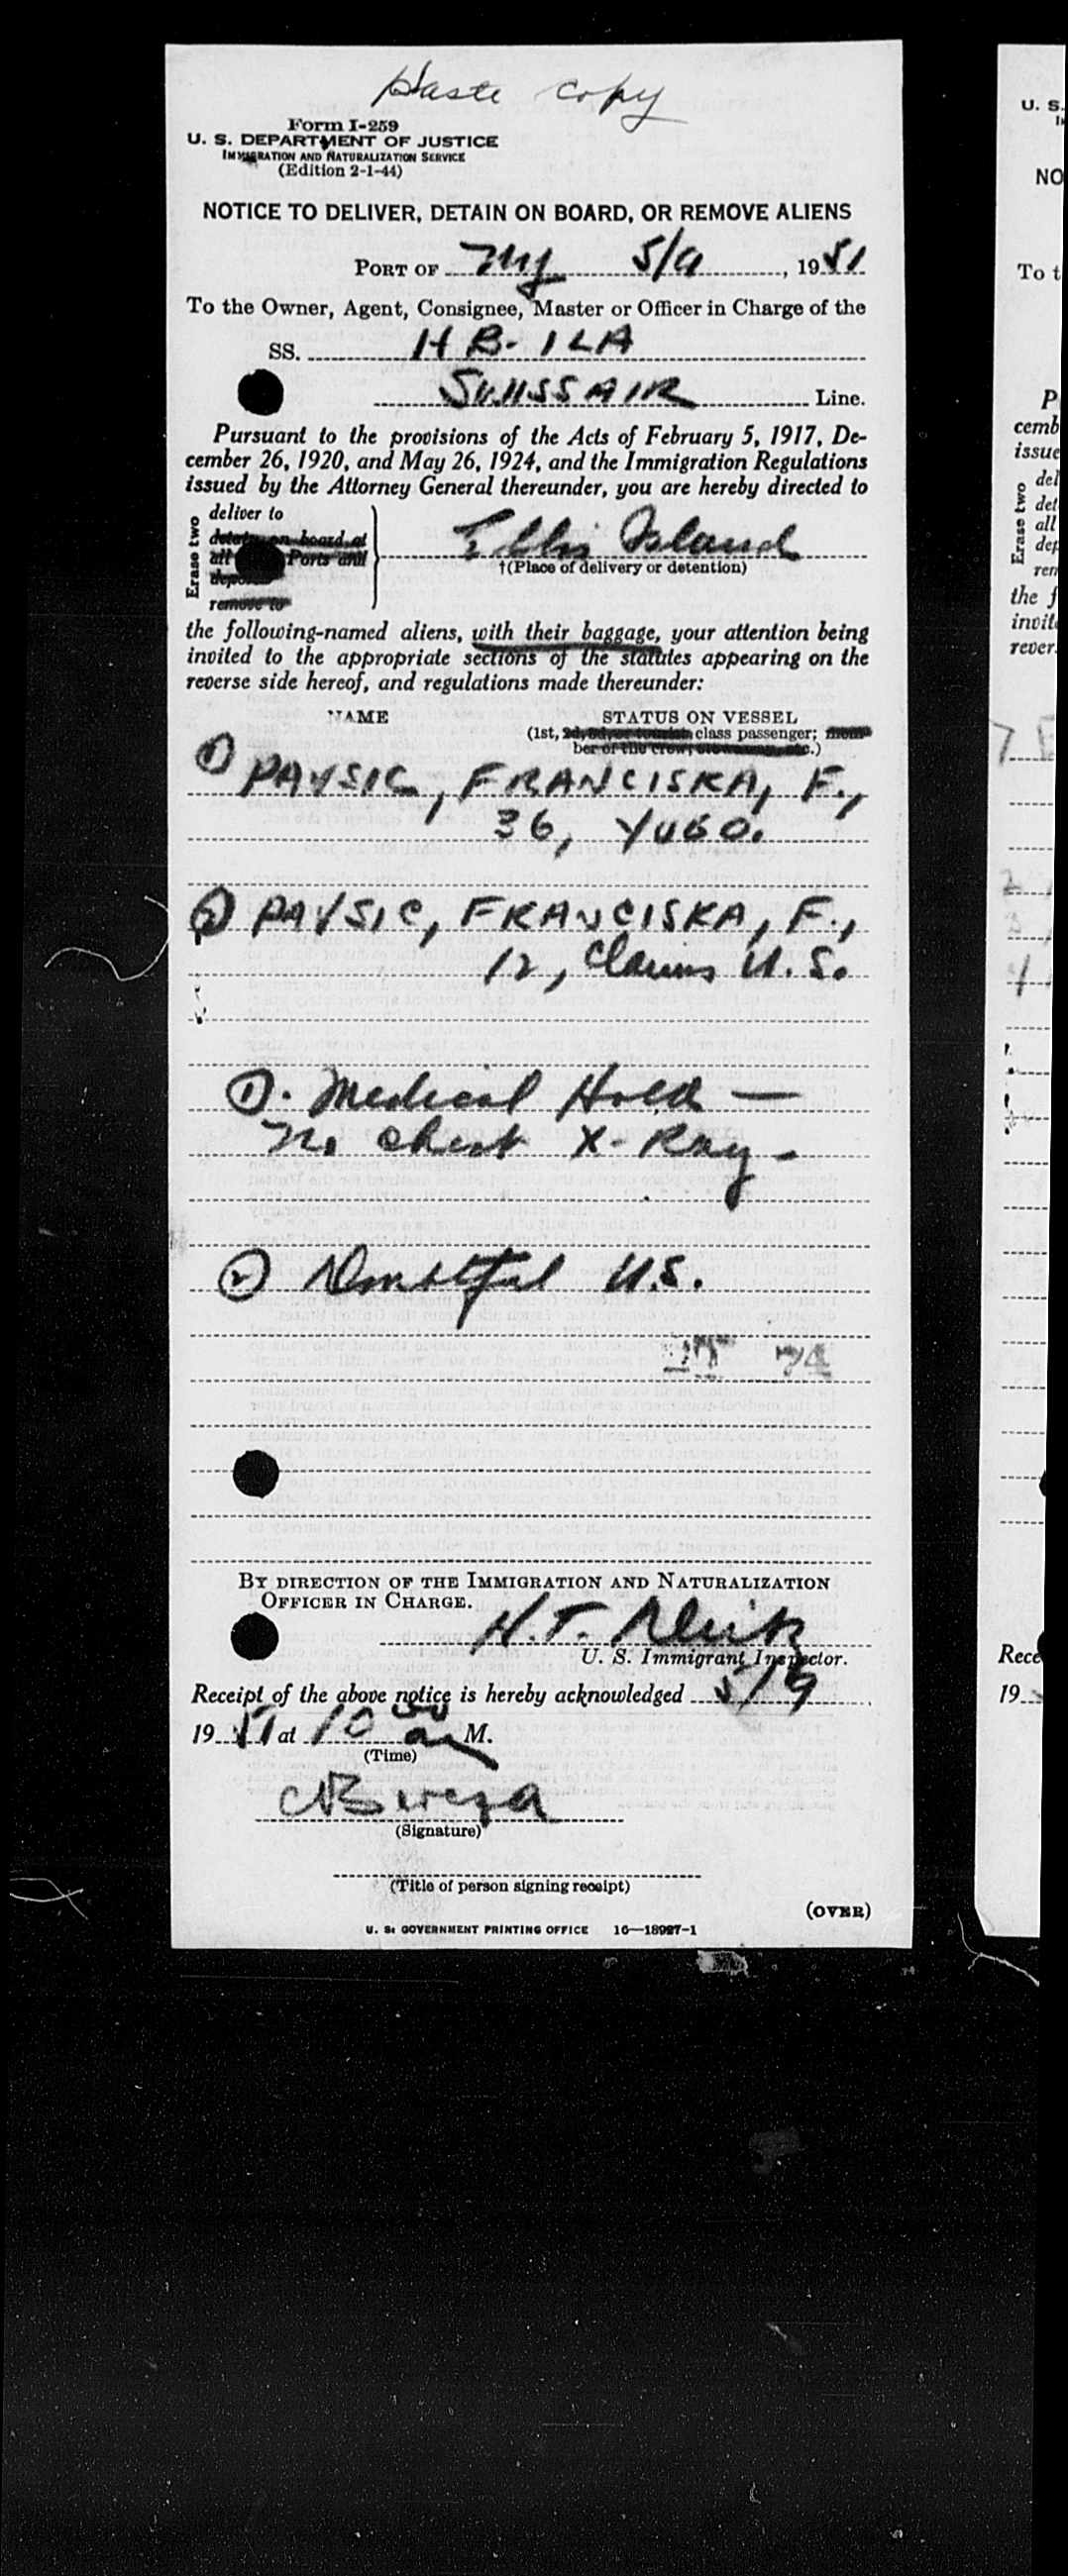 Paste copy
Form I-259
U. S. DEPARTMENT OF JUSTICE
IMMIGRATION AND NATURALIZATION SERVICE
(Edition 2-1-44)
NOTICE TO DELIVER, DETAIN ON BOARD, OR REMOVE ALIENS
PORT OF NY 5/9, 1951
To the Owner, Agent, Consignee, Master or Officer in Charge of the
SS. HB-ILA
SWISSAIR Line.
Pursuant to the provisions of the Acts of February 5, 1917, De-
cember 26, 1920, and May 26, 1924, and the Immigration Regulations
issued by the Attorney General thereunder, you are hereby directed to
Erase two
deliver to
detain on board at
all Ports and
deport
remove to
Ellis Island
†(Place of delivery or detention)
the following-named aliens, with their baggage, your attention being
invited to the appropriate sections of the statutes appearing on the
reverse side hereof, and regulations made thereunder:
NAME STATUS ON VESSEL
(1st, 2d, 3d, or tourist class passenger; mem-
ber of the crew, stowaway, etc.)
① PAVSIC, FRANCISKA, F.,
36, YUGO.
② PAVSIC, FRANCISKA, F.,
12, Claims U.S.
①. Medical Hold —
No chest X-Ray -
② Doubtful U.S.
BY DIRECTION OF THE IMMIGRATION AND NATURALIZATION
OFFICER IN CHARGE.
H.T.
U. S. Immigrant Inspector.
Receipt of the above notice is hereby acknowledged 5/9,
1951 at 10 00 am M.
(Time)
(Signature)
(Title of person signing receipt)
(OVER)
U. S. GOVERNMENT PRINTING OFFICE 16—18997-1
U. S.
NO
To t
P
cemb
issue
Erase two
del
det
all
dep
ren
the f
invit
rever
Rece
19